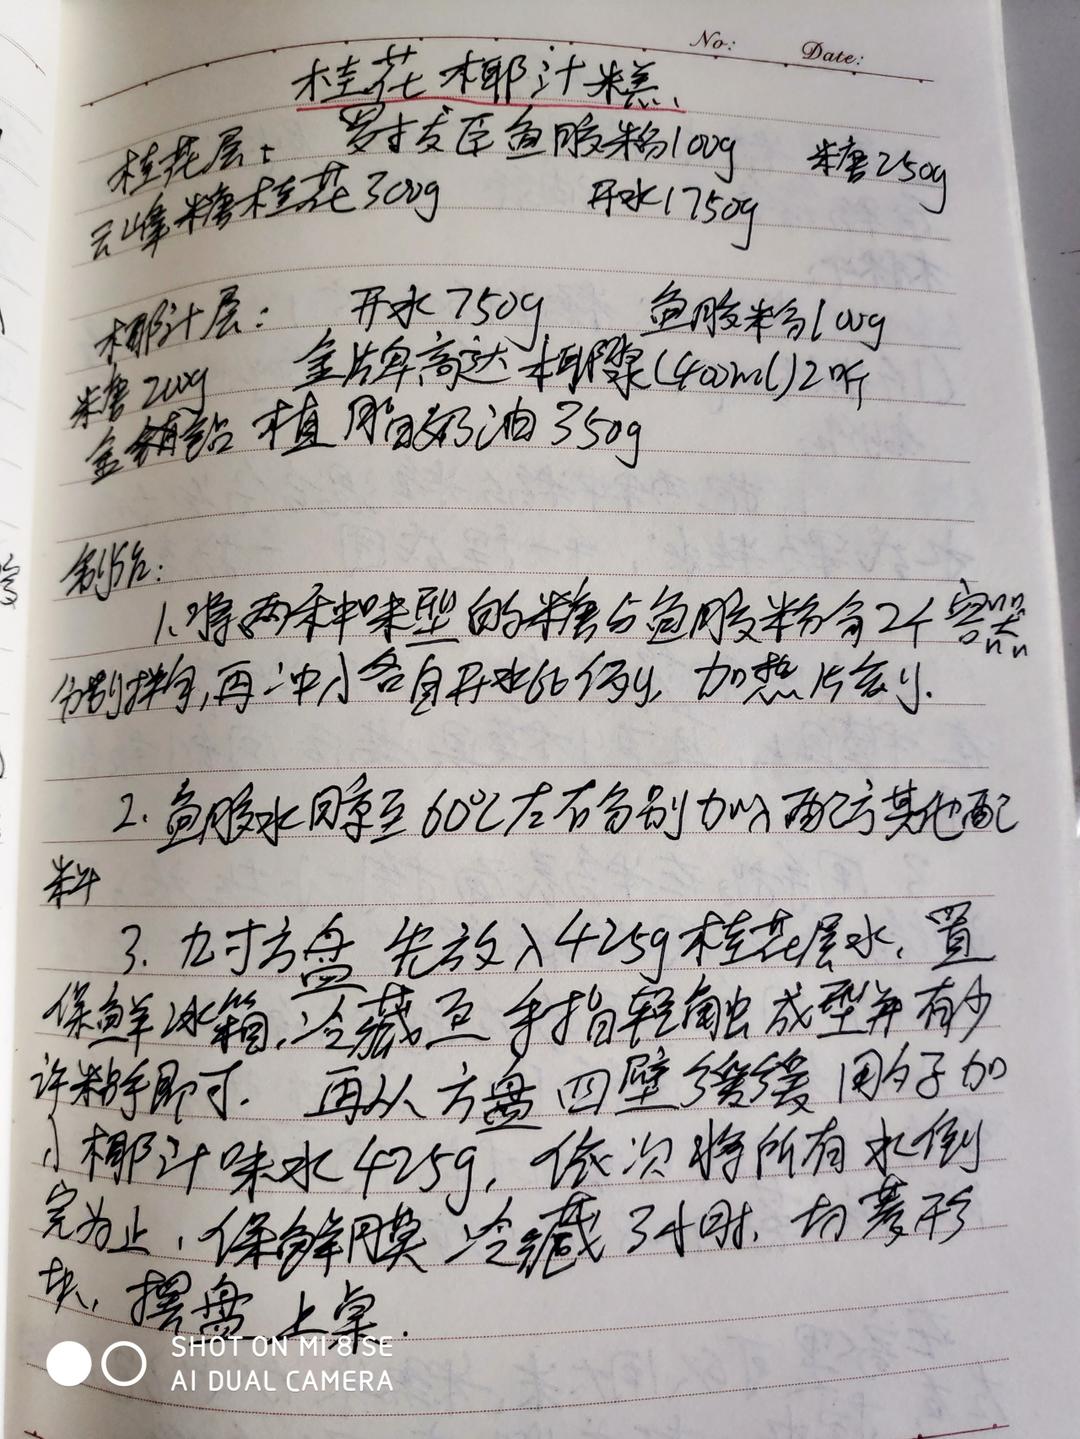 No: Date:
桂花椰汁糕
桂花层: 鱼胶粉100g 糖250g
云峰糖桂花300g 开水1750g
椰汁层: 开水750g 鱼胶粉100g
糖200g 金牌高达椰浆(400ml)2听
金钻植脂奶油350g
制法:
1.将两种味型的糖与鱼胶粉合2个容器
分别拌匀,再冲入各自开水比例,加热片刻.
2.鱼胶水回凉至60℃左右分别加入配方其他配
料
3.九寸方盘先放入425g桂花层水,置
保鲜冰箱,冷藏至手指轻触成型并有少
许粘手即可.再从方盘四壁缓缓用勺子加
入椰汁味水425g,依次将所有水倒
完为止,保鲜膜冷藏3小时.切菱形
块,摆盘上桌.
SHOT ON MI 8 SE
AI DUAL CAMERA